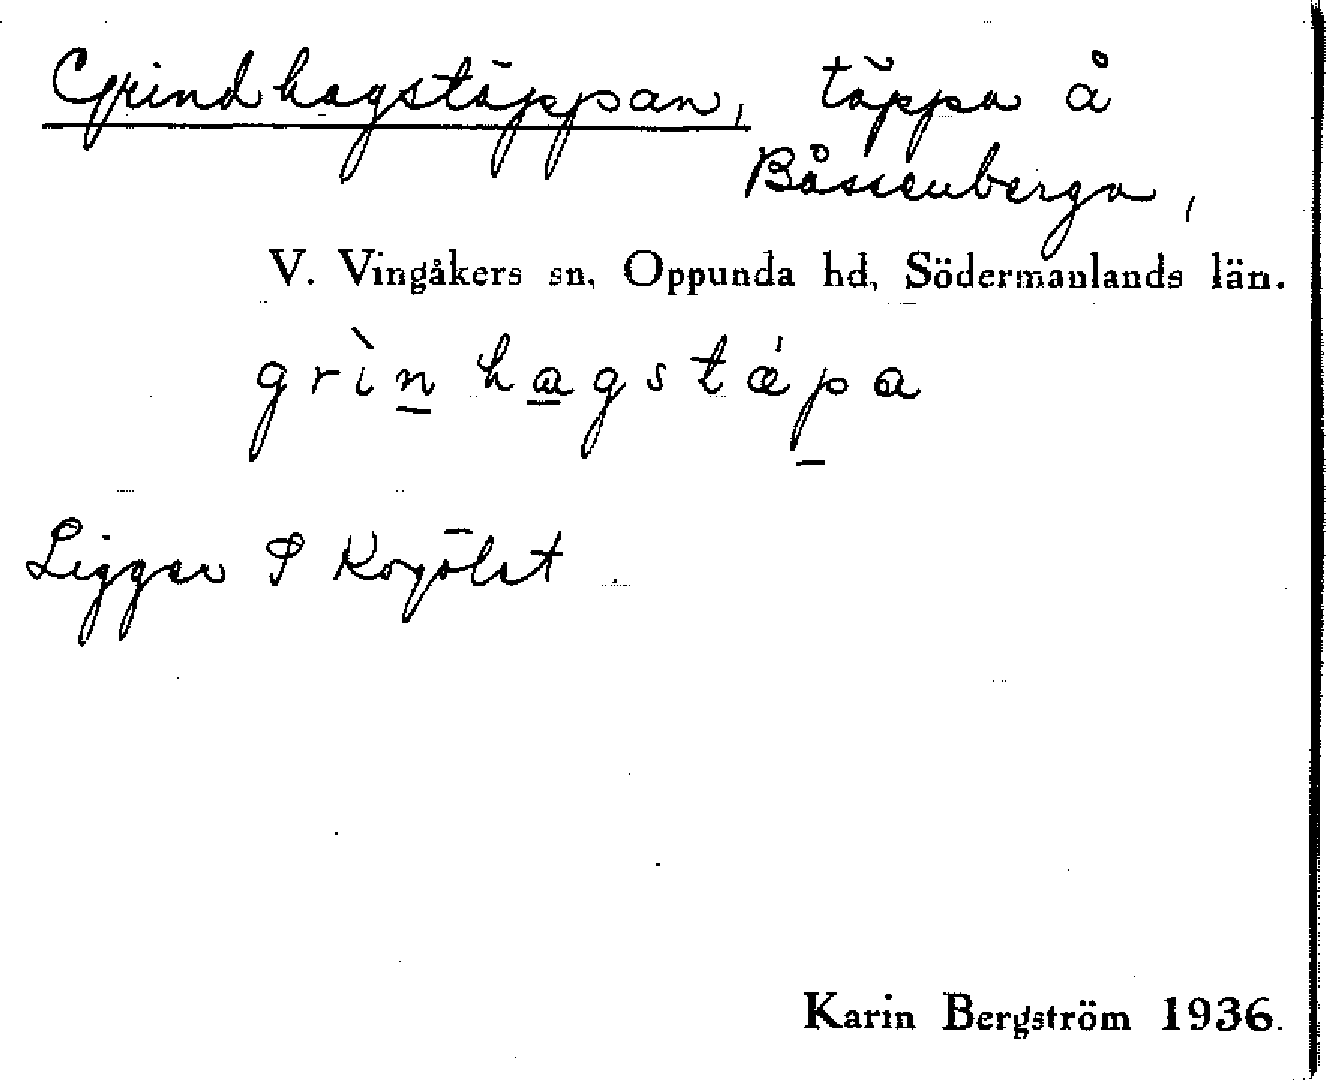 Grindhagstäppan, täppa å
Båssenberga,
V. Vingåkers sn, Oppunda hd, Södermanlands län.
grìnhagstǽpa
Ligger S
Karin Bergström 1936.